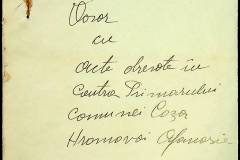 Dosar
cu
Acte dresate în
Contra Primarului
Comunei Coza
Hromovai Afanasie